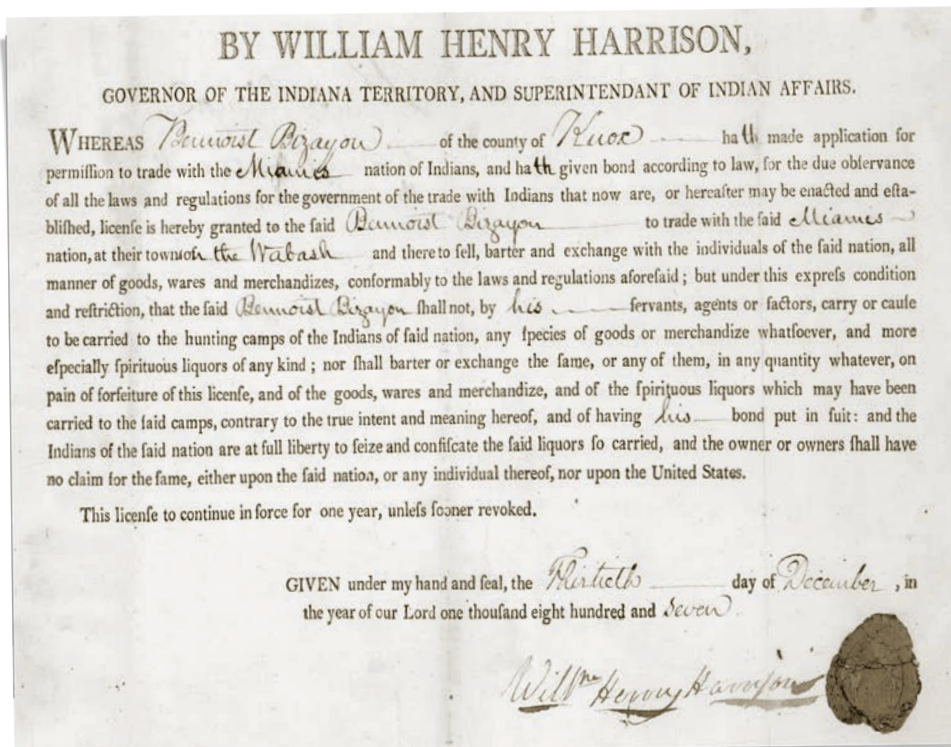 BY WILLIAM HENRY HARRISON,
GOVERNOR OF THE INDIANA TERRITORY, AND SUPERINTENDANT OF INDIAN AFFAIRS.
WHEREAS Bennoist Bizayon of the county of Knox hath made application for
permiſſion to trade with the Miamies nation of Indians, and hath given bond according to law, for the due obſervance
of all the laws and regulations for the government of the trade with Indians that now are, or hereafter may be enacted and eſta-
bliſhed, licenſe is hereby granted to the ſaid Bennoist Bizayon to trade with the ſaid Miamies
nation, at their towns on the Wabash and there to ſell, barter and exchange with the individuals of the ſaid nation, all
manner of goods, wares and merchandizes, conformably to the laws and regulations aforeſaid; but under this expreſs condition
and reſtriction, that the ſaid Bennoist Bizayon ſhall not, by his ſervants, agents or factors, carry or cauſe
to be carried to the hunting camps of the Indians of ſaid nation, any ſpecies of goods or merchandize whatſoever, and more
eſpecially ſpirituous liquors of any kind; nor ſhall barter or exchange the ſame, or any of them, in any quantity whatever, on
pain of forfeiture of this licenſe, and of the goods, wares and merchandize, and of the ſpirituous liquors which may have been
carried to the ſaid camps, contrary to the true intent and meaning hereof, and of having his bond put in ſuit: and the
Indians of the ſaid nation are at full liberty to ſeize and confiſcate the ſaid liquors ſo carried, and the owner or owners ſhall have
no claim for the ſame, either upon the ſaid nation, or any individual thereof, nor upon the United States.
This licenſe to continue in force for one year, unleſs ſooner revoked.
GIVEN under my hand and ſeal, the Thirtieth day of December, in
the year of our Lord one thouſand eight hundred and Seven.
Willm Henry Harrison